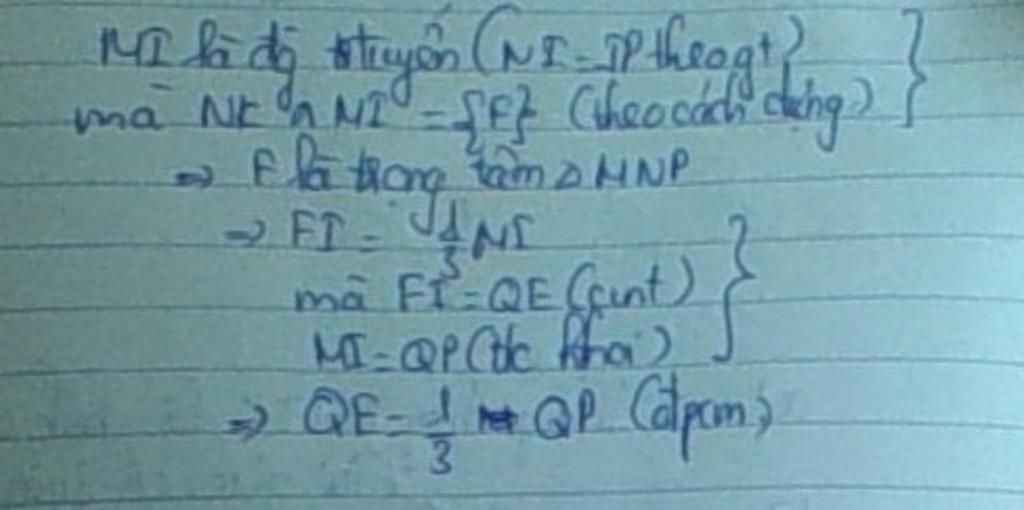 MI là đg truyến (NI = IP theo gt)
mà NK ∩ MI = {F} (theo cách dựng)
=> F là trọng tâm △ MNP
=> FI = 1/3 MI
mà FI = QE (cmt)
MI = QP (t/c hbh)
=> QE = 1/3 QP (đpcm)